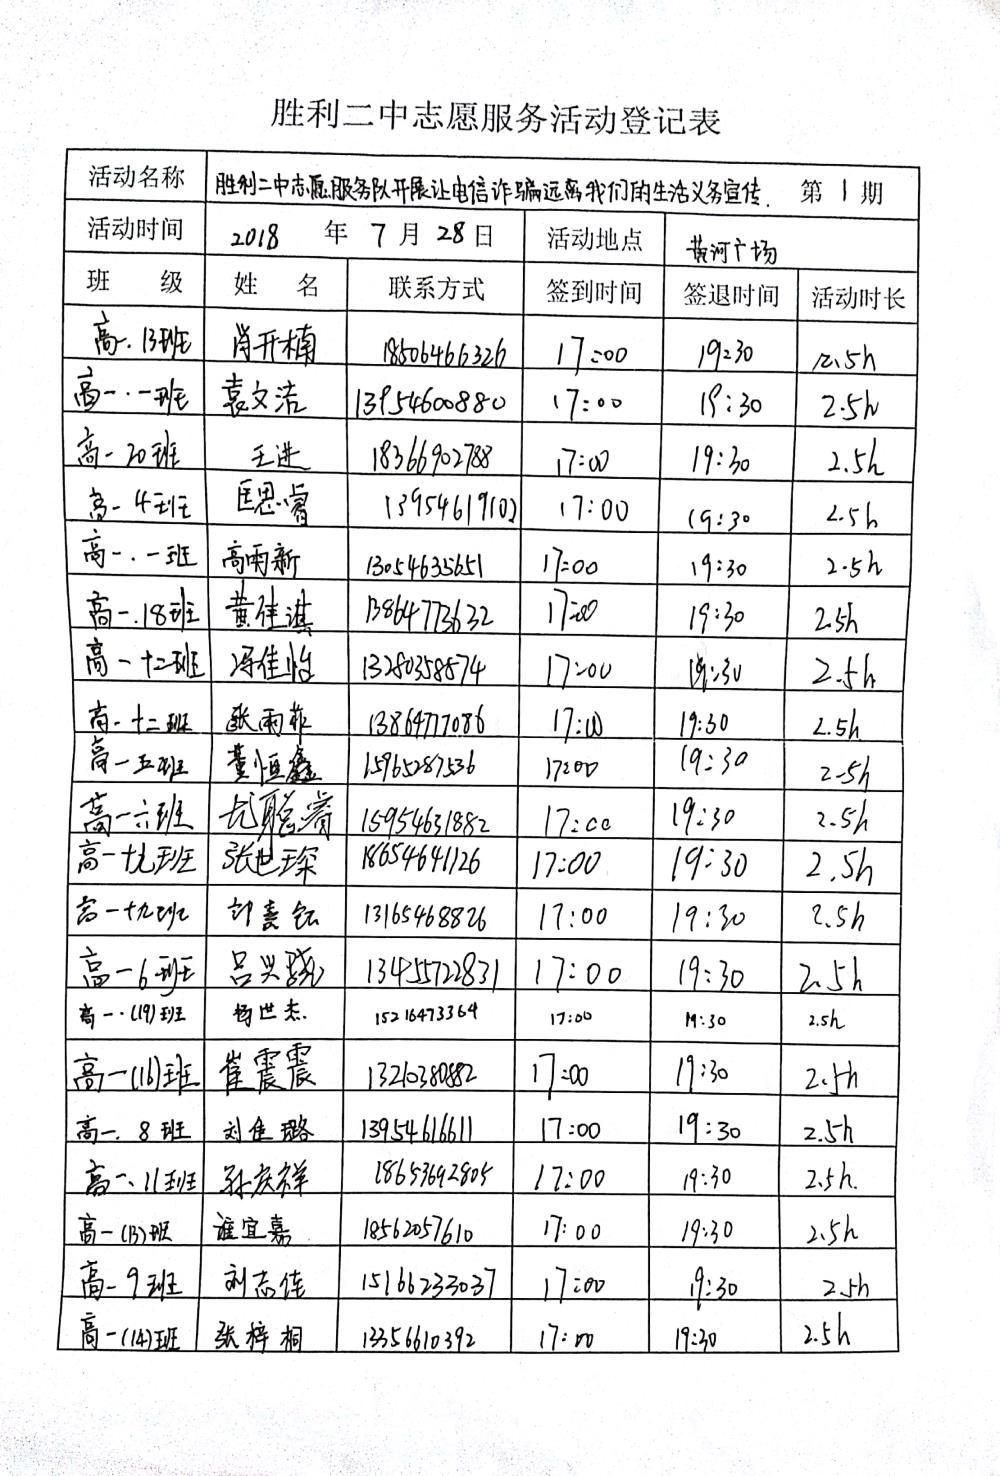 胜利二中志愿服务活动登记表
活动名称 胜利二中志愿服务队开展让电信诈骗远离我们的生活义务宣传. 第1期
活动时间 2018年7月28日 活动地点 黄河广场
班级 姓名 联系方式 签到时间 签退时间 活动时长
高一.13班 肖开楠 18506466326 17:00 19:30 2.5h
高一.一班 袁文洁 13954600880 17:00 19:30 2.5h
高一20班 王进 18366902788 17:00 19:30 2.5h
高一4班 匡思睿 13954619102 17:00 19:30 2.5h
高一.一班 高雨新 13054635651 17:00 19:30 2.5h
高一.18班 黄佳淇 13864773632 17:00 19:30 2.5h
高一十二班 冯佳怡 13280358874 17:00 19:30 2.5h
高一十二班 张雨菲 13864777086 17:00 19:30 2.5h
高一五班 董恒鑫 15965287536 17:00 19:30 2.5h
高一六班 尤聪睿 15954631882 17:00 19:30 2.5h
高一十九班 张世琛 18654641126 17:00 19:30 2.5h
高一十九班 13165468826 17:00 19:30 2.5h
高一6班 吕兴骁 13455722831 17:00 19:30 2.5h
高一.(19)班 杨世杰 15216473364 17:00 19:30 2.5h
高一(16)班 崔震震 13210380882 17:00 19:30 2.5h
高一.8班 刘佳璐 13954616611 17:00 19:30 2.5h
高一、11班 孙庆祥 18653692805 17:00 19:30 2.5h.
高一(13)班 淮宜嘉 18562057610 17:00 19:30 2.5h
高一9班 刘志佳 15166233037 17:00 19:30 2.5h
高一(14)班 张梓桐 13356610392 17:00 19:30 2.5h